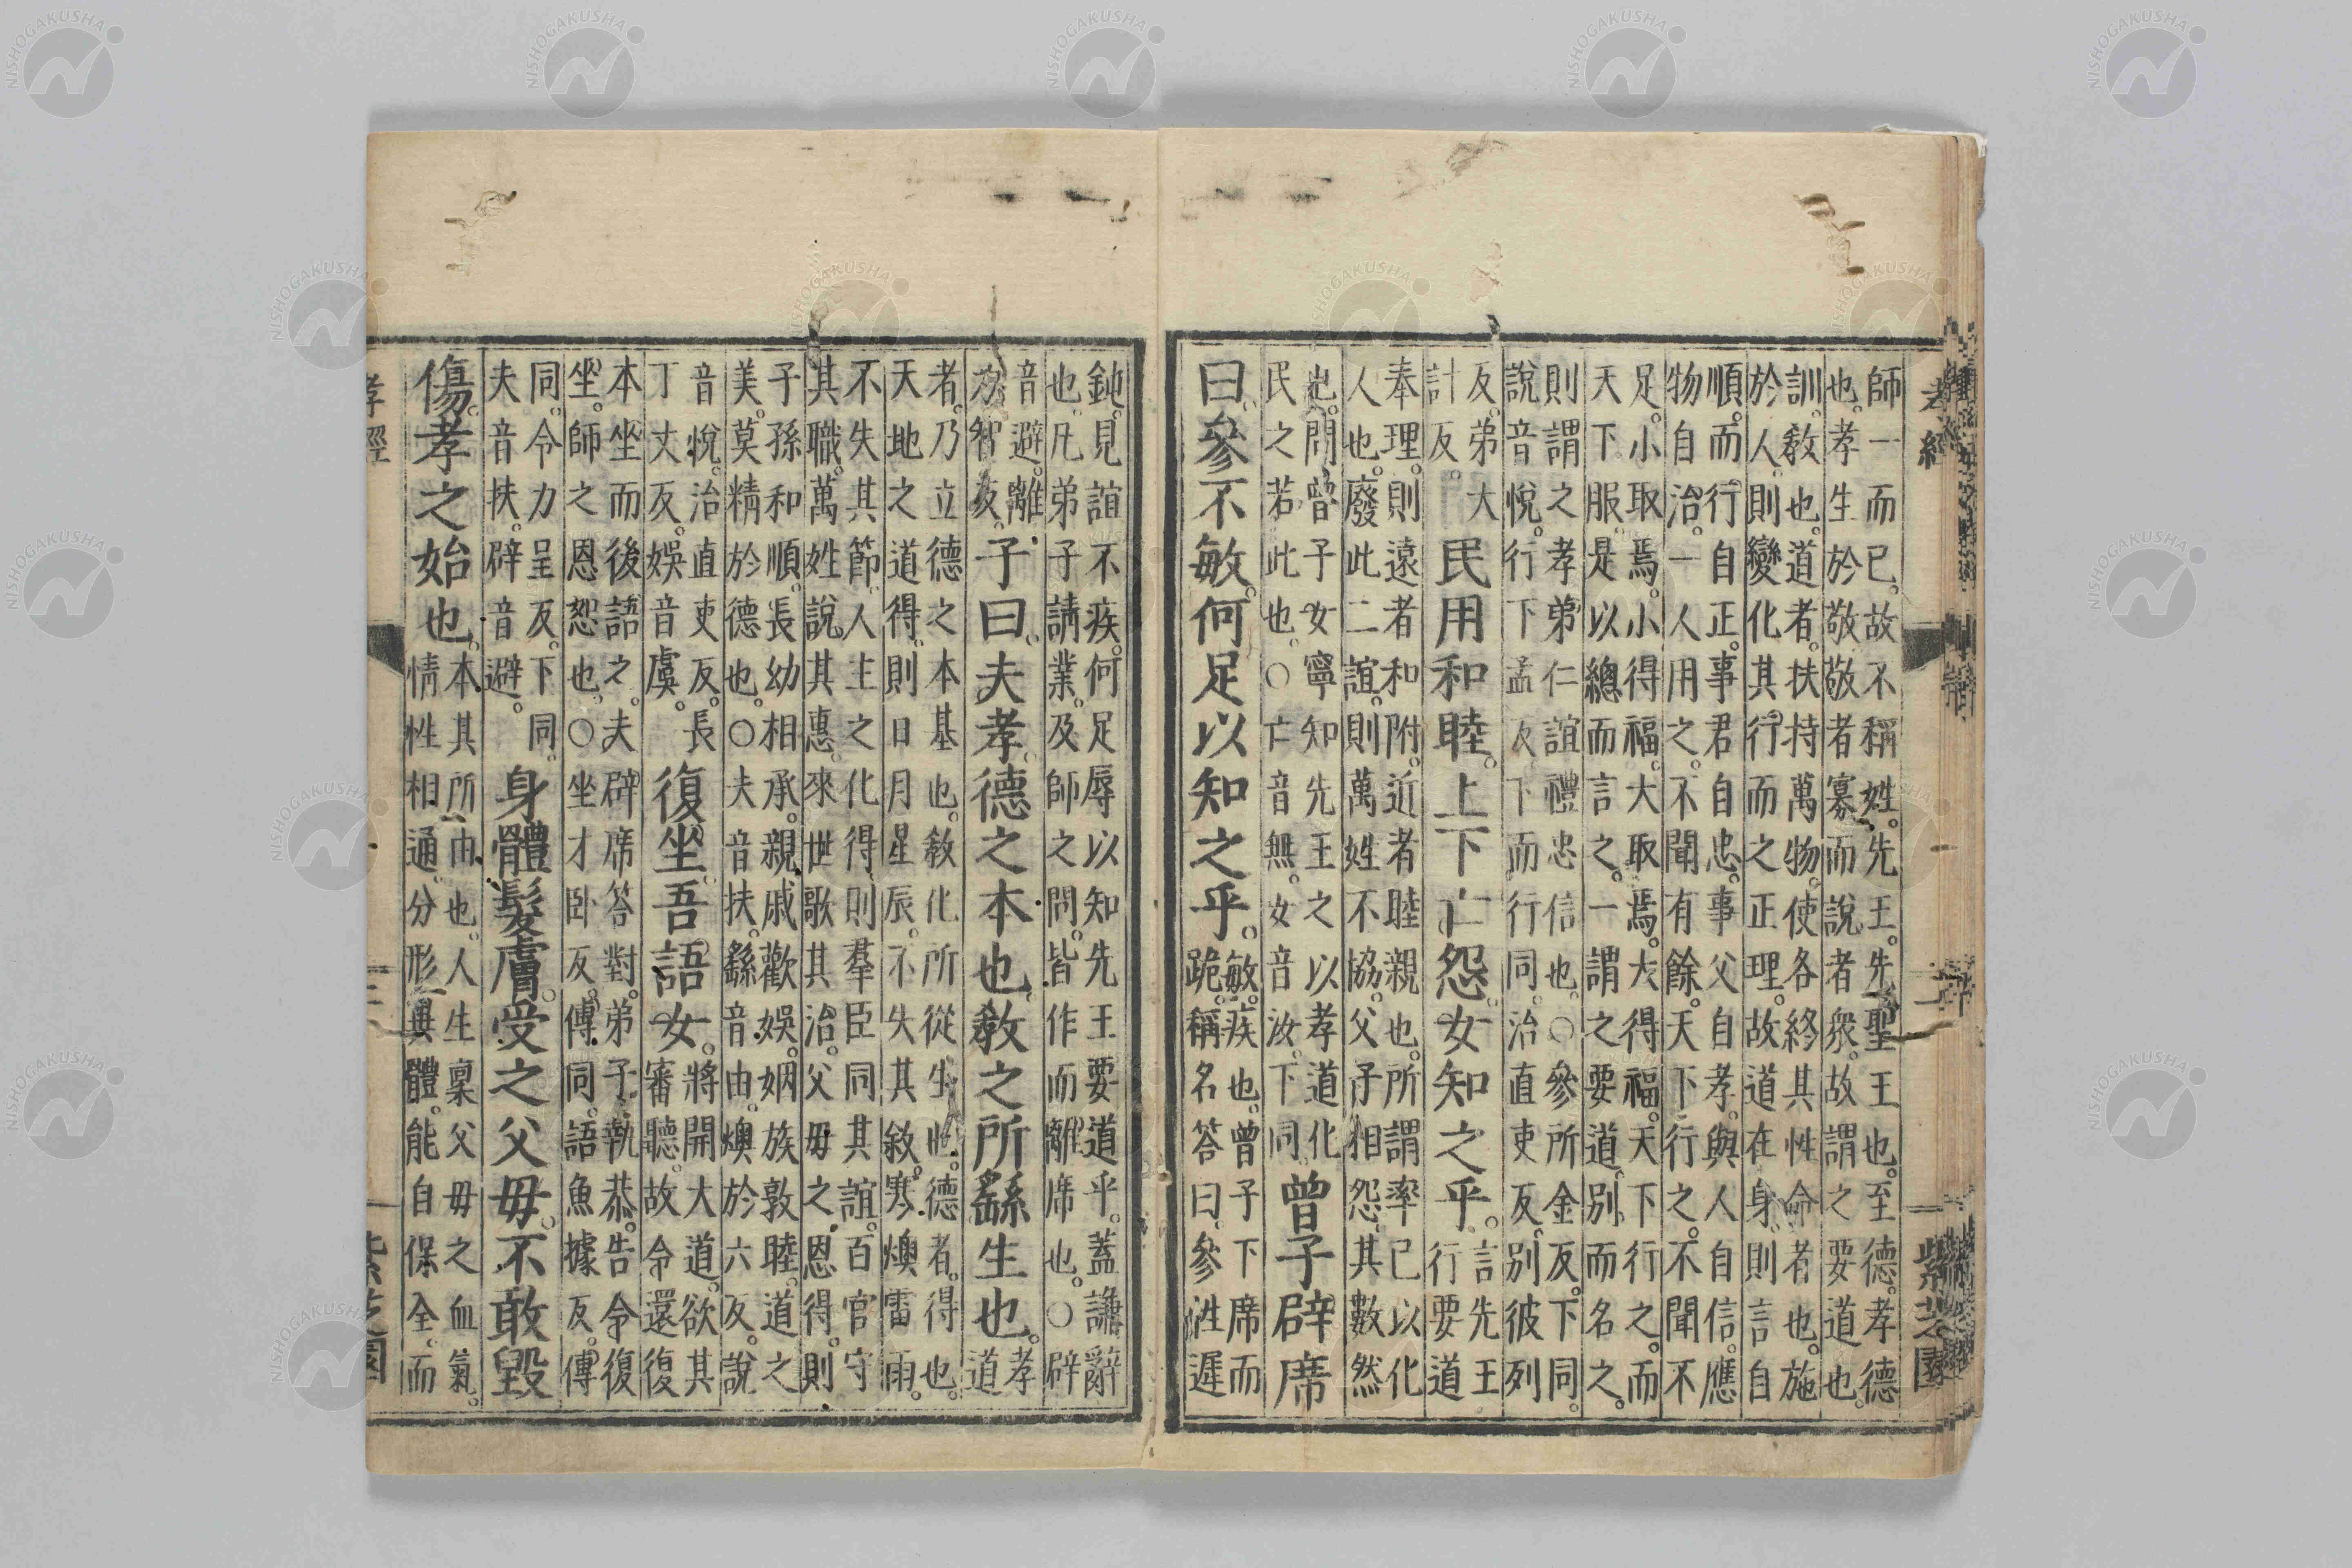 孝經 二 紫芝園
師一而已。故不稱姓。先王。先聖王也。至德。孝德
也。孝生於敬。敬者寡而說者衆。故謂之要道也。
訓。教也。道者。扶持萬物。使各終其性命者也。施
於人。則變化其行而之正理。故道在身。則言自
順。而行自正。事君自忠。事父自孝。與人自信。應
物自治。一人用之。不聞有餘。天下行之。不聞不
足。小取焉。小得福。大取焉。大得福。天下行之。而
天下服。是以總而言之。一謂之要道。別而名之。
則謂之孝弟仁誼禮忠信也。○參所金反。下同。
說音悅。行下孟反。下而行同。治直吏反。別彼列
反。弟大
計反。
民用和睦。上下亡怨。女知之乎。
言先王
行要道
奉理。則遠者和附。近者睦親也。所謂率己以化
人也。廢此二誼。則萬姓不協。父子相怨。其數然
也。問曾子女寧知先王之以孝道化
民之若此也。○亡音無。女音汝。下同。
曾子辟席
曰。參不敏。何足以知之乎。
敏。疾也。曾子下席而
跪。稱名答曰。參性遲
鈍。見誼不疾。何足辱以知先王要道乎。蓋謙辭
也。凡弟子請業。及師之問。皆作而離席也。○辟
音避。離
力智反。
子曰。夫孝。德之本也。教之所繇生也。
孝
道
者。乃立德之本基也。教化所從生也。德者。得也。
天地之道得。則日月星辰。不失其敘。寒燠雷雨。
不失其節。人主之化得。則羣臣同其誼。百官守
其職。萬姓說其惠。來世歌其治。父母之恩得。則
子孫和順。長幼相承。親戚歡娛。姻族敦睦。道之
美。莫精於德也。○夫音扶。繇音由。燠於六反。說
音悅。治直吏反。長
丁丈反。娛音虞。
復坐。吾語女。
將開大道。欲其
審聽。故令還復
本坐而後語之。夫辟席答對。弟子執恭。告令復
坐。師之恩恕也。○坐才卧反。傳同。語魚據反。傳
同。令力呈反。下同。
夫音扶。辟音避。
身體髮膚。受之父母。不敢毀
傷。孝之始也。
本其所由也。人生稟父母之血氣。
情性相通。分形異體。能自保全。而
孝經 三 紫芝園
NISHOGAKUSHA